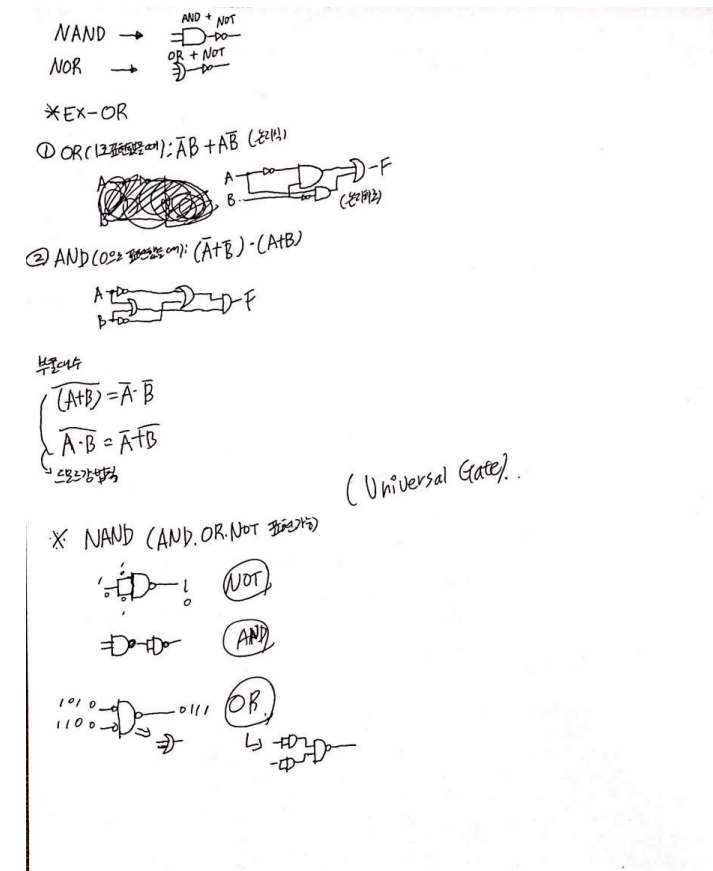 NAND → AND + NOT
NOR → OR + NOT
*EX-OR
① OR(1로 표현됐을 때): A̅B + AB̅ (논리식)
A
B
A
B
F
(논리회로)
② AND(0으로 표현됐을 때): (A̅+B̅)·(A+B)
A
B
F
부울대수
(A+B)̅ = A̅·B̅
A·B̅ = A̅+B̅
드모르강 법칙
(Universal Gate)..
※ NAND (AND.OR.NOT 표현가능)
NOT
AND
1010
1100
0111
OR.